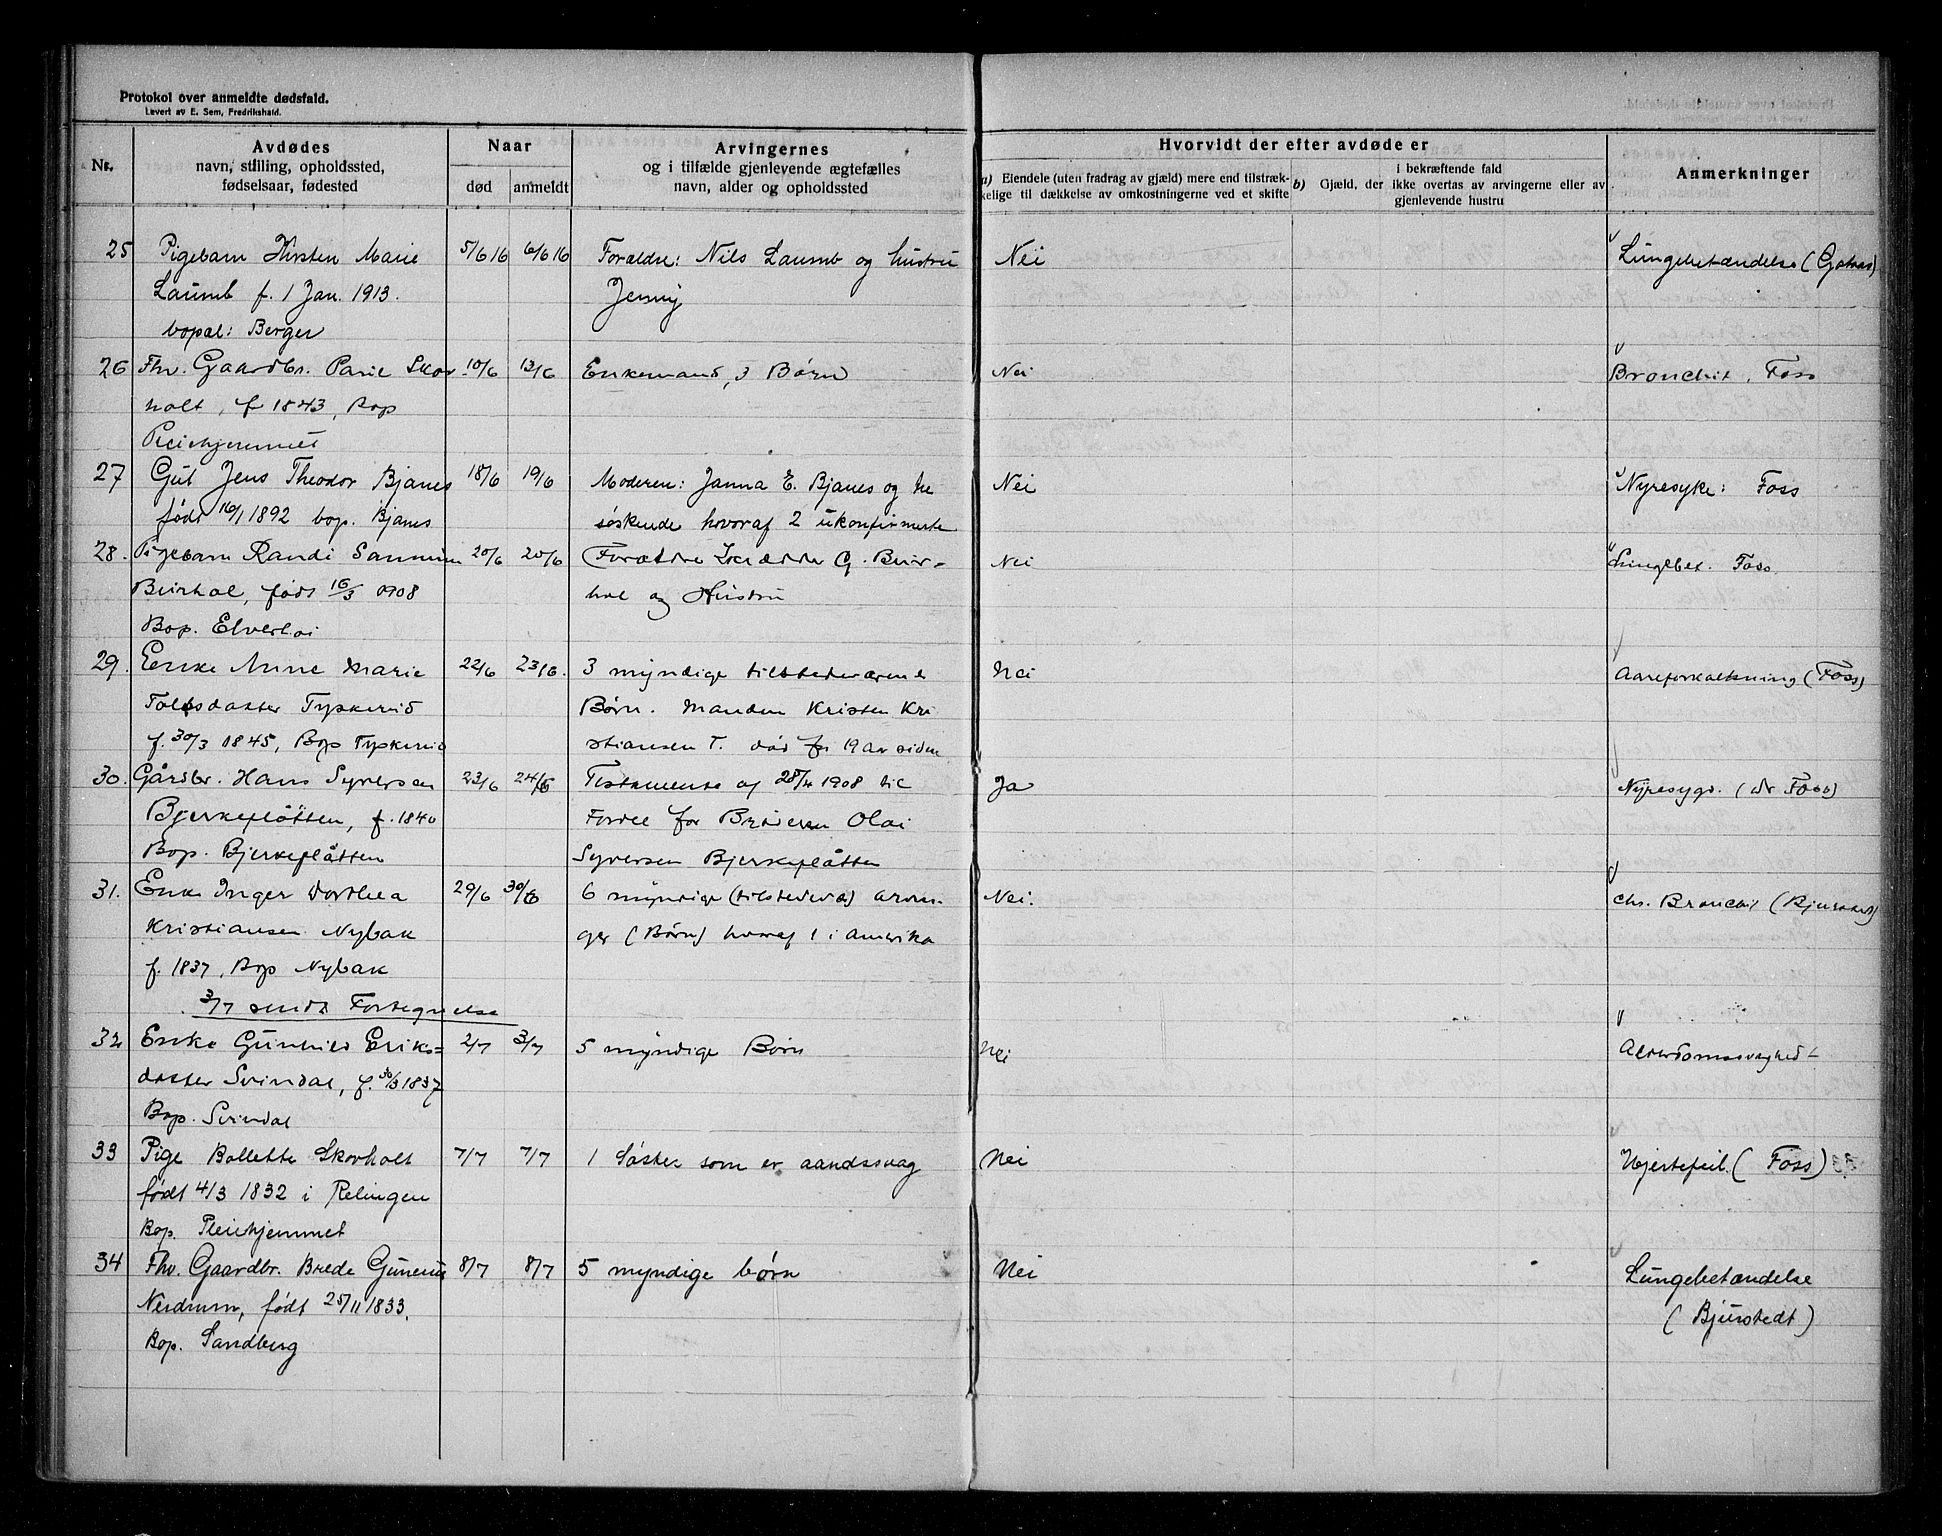 Protokol over anmeldte dødsfald.
Levert av E. Sem, Fredrikshald.
Nr.
Avdødes
navn, stilling, opholdssted,
fødselsaar, fødested
Naar
død anmeldt
Arvingernes
og i tilfælde gjenlevende ægtefælles
navn, alder og opholdssted
Hvorvidt der efter avdøde er
a) Eiendele (uten fradrag av gjæld) mere end tilstræk-
kelige til dækkelse av omkostningerne ved et skifte
i bekræftende fald
b) Gjæld, der ikke overtas av arvingerne eller av
gjenlevende hustru
Anmerkninger
25 Pigebarn Kirsten Marie 5/6 16 6/6 16 Forældre: Nils Laumb og hustru Nei Lungebetændelse
Laumb f. 1 Jan. 1913. Jenny
bopæl: Berger
26 Fhv. Gaardbr. Skov- 10/6 13/6 Enkemand, 3 Børn Nei Bronchit, Foss
holt, f 1843, Bop
Pleiehjemmet
27 Gut Jens Theodor Bjanes 18/6 19/6 Moderen: Janna E. Bjanes og Nei Nyresyke: Foss
født 1892 bop. Bjanes søskende hvoraf 2 ukonfirmerte
28. Pigebarn Randi 20/6 20/6 Forældre Skrædder G. Nei Lungebet. Foss
født 16/3 1908 og Hustru
Bop. Elverhøi
29. Enke Anne Marie 22/6 23/6. 3 myndige tilstedeværende Nei Aareforkalkning (Foss)
Børn. Manden Kristen Kri
f. 30/3 1845, Bop stiansen T. død for 19 aar siden
30. Gårdbr. Hans Syversen 23/6 24/6 Testamente af 28/4 1908 til Ja Nyresygd. (dr Foss)
Bjerkeplåtten, f. 1840 Fordel for Broderen Olai
Bop. Bjerkeplåtten Syversen Bjerkeplåtten
31. Enke Inger Dorthea 29/6 30/6 6 myndige arvin- Nei. Chr. Bronchit (Bjurstedt)
Kristiansen Nybak ger (Børn) hvoraf 1 i Amerika
f. 1837, Bop Nybak
3/7 sendt Fortegnelse
32 Enke Gunhild Eriks= 2/7 3/7 5 myndige Børn Nei Alderdomssvaghed
datter Svindal, f. 30/3 1837
Bop. Svindal
33 Pige Bollette Skovholt 7/7 7/7 1 Søster som er aandssvag Nei Hjertefeil (Foss)
født 4/3 1832 i Relingen
Bop. Pleiehjemmet
34 Fhv. Gaardbr. Brede Gunerius 8/7 8/7 5 myndige børn Nei Lungebetændelse
Nerdrum, født 25/11 1833. (Bjurstedt)
Bop. Sandberg